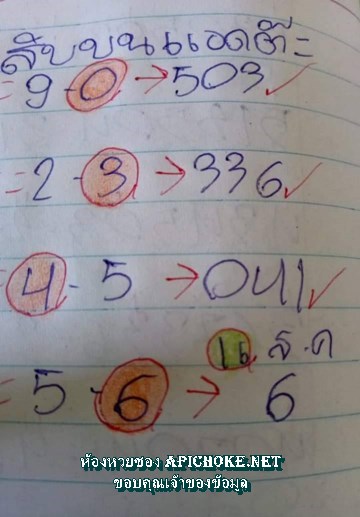 สิบบนแอดต๊ะ
= 9 - 0 → 503 ✓
= 2 - 3 → 336 ✓
4 - 5 → 041 ✓
16 ส.ค
= 5 - 6 → 6
ห้องหวยซอง APICHOKE.NET
ขอบคุณเจ้าของข้อมูล